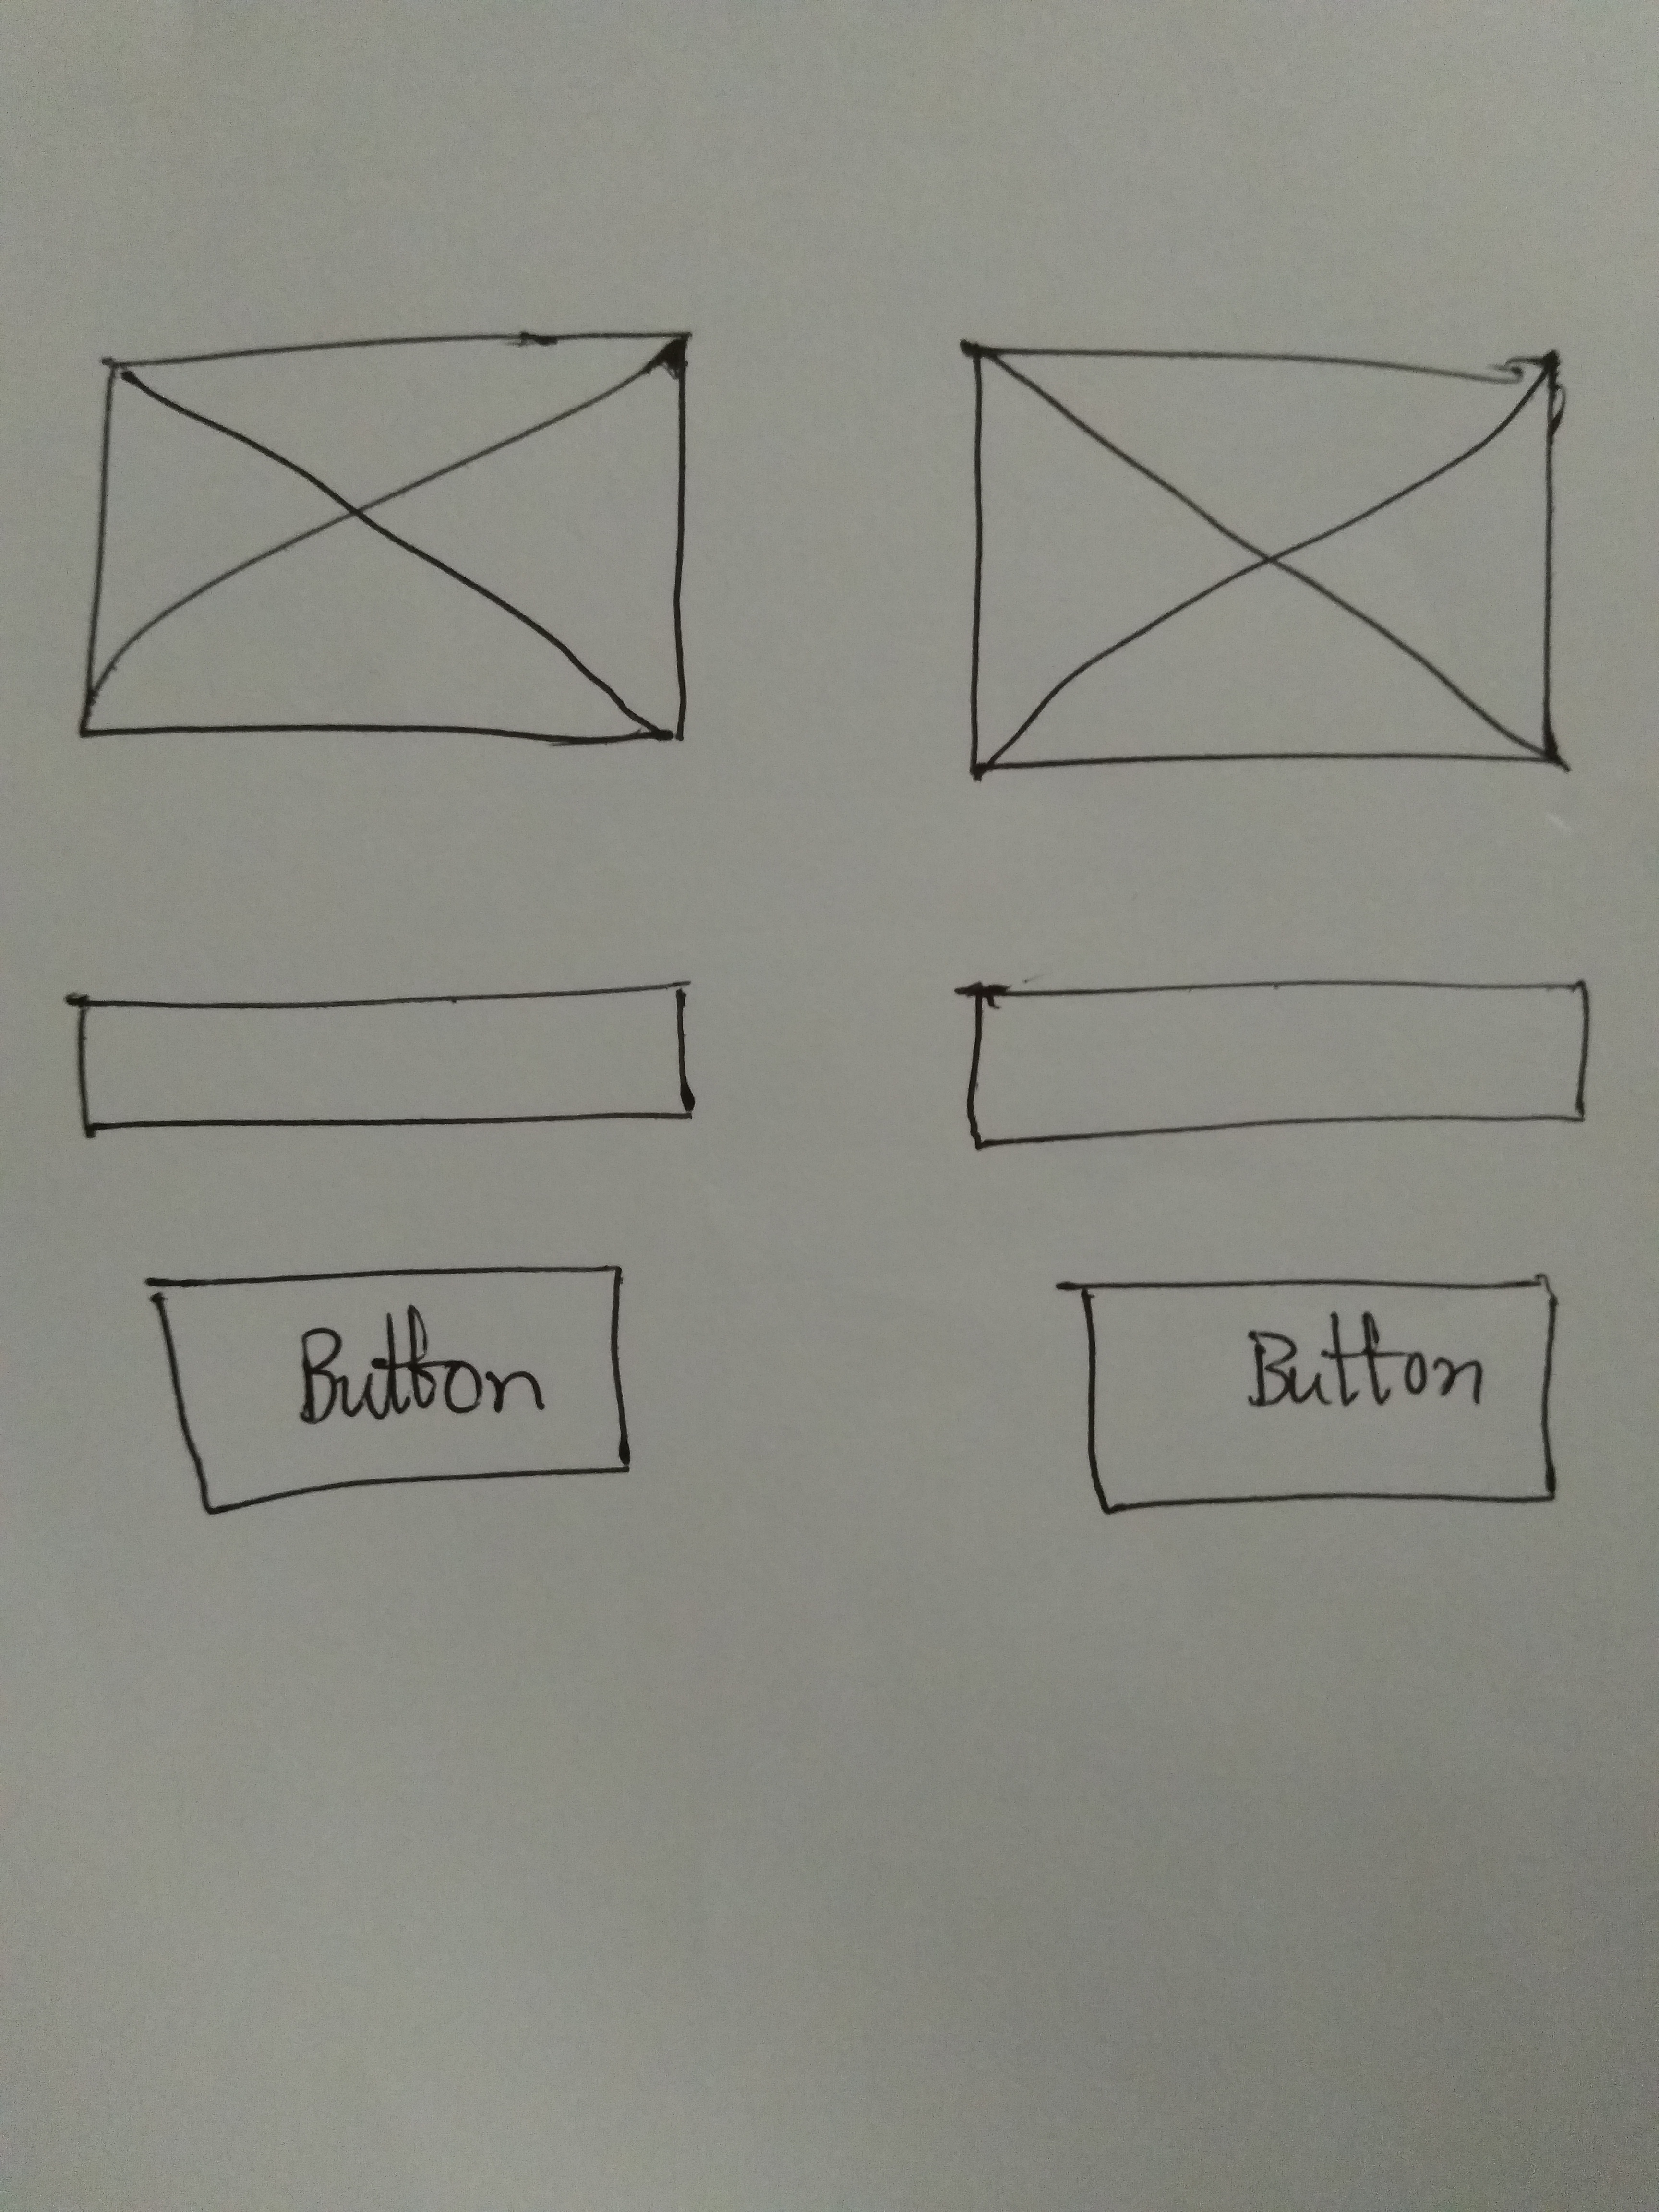 Button
Button